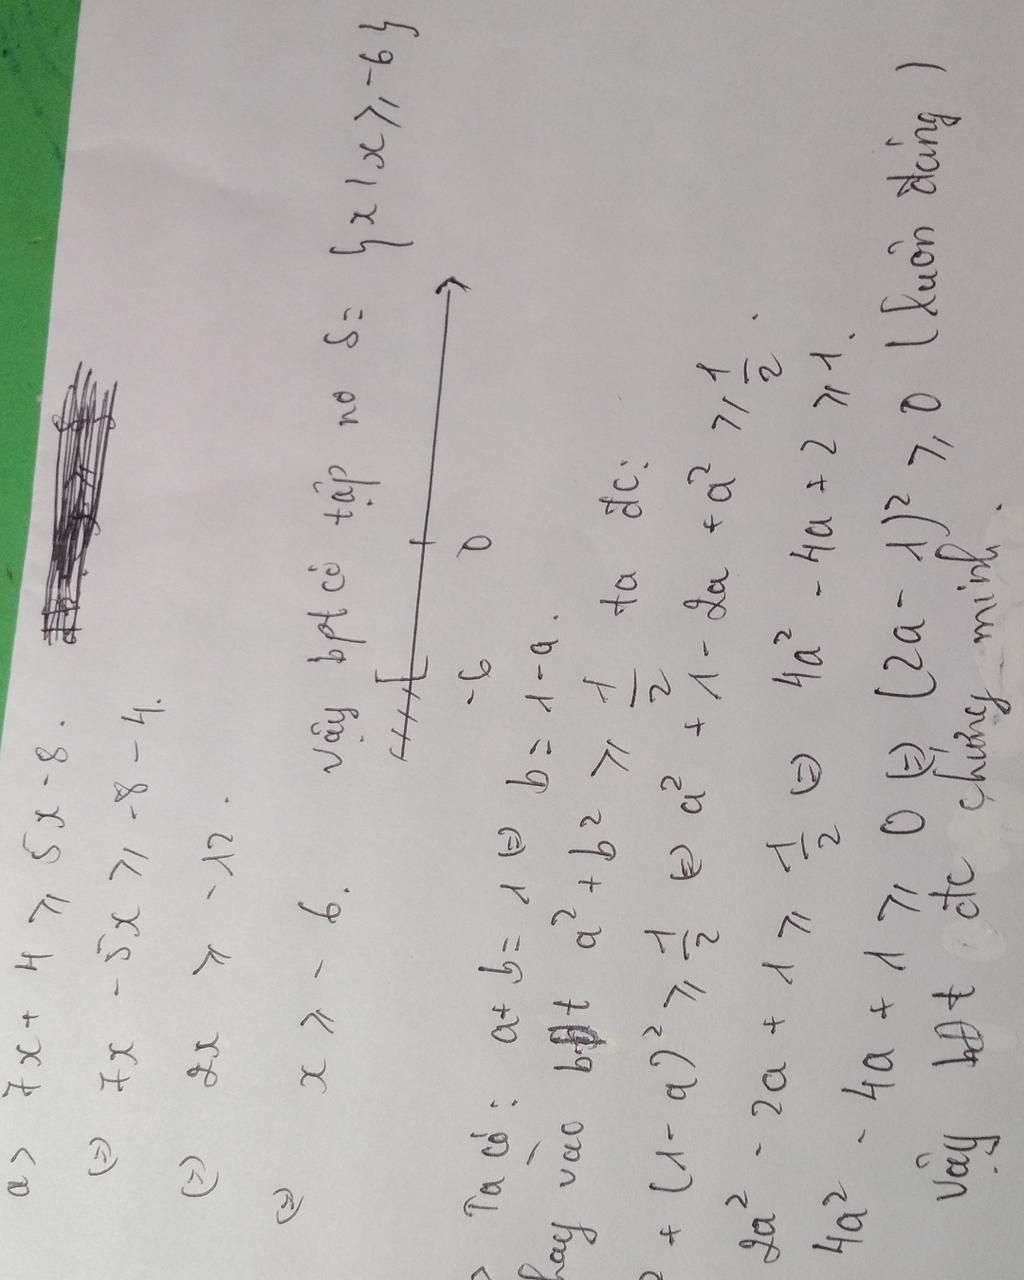 a> 7x + 4 ⩾ 5x - 8.
(=) 7x - 5x ⩾ -8 - 4.
(=) 2x ⩾ -12.
(=) x ⩾ - 6.
Vậy bpt có tập no S = {x | x ⩾ -6}
-6 0
Ta có: a + b = 1 (=) b = 1 - a.
hay vào bđt a² + b² ⩾ 1/2 ta đc:
² + (1 - a)² ⩾ 1/2 (=) a² + 1 - 2a + a² ⩾ 1/2.
2a² - 2a + 1 ⩾ 1/2 (=) 4a² - 4a + 2 ⩾ 1.
4a² - 4a + 1 ⩾ 0 (=) (2a - 1)² ⩾ 0 (luôn đúng)
Vậy bđt đc chứng minh.